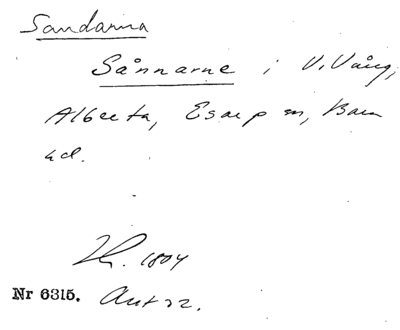 Sandarna
Sånnarne i V. Vång,
Alberta, Esarp sn, Bara
hd.
1804
Nr 6315. Ant 22.